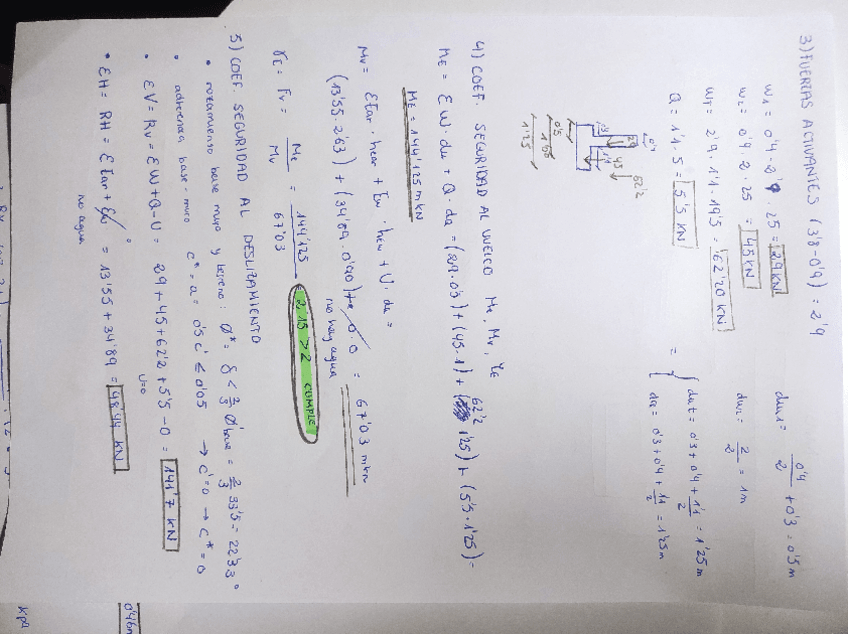 3) FUERZAS ACTIVANTES (3'8-0'9) = 2'9
W1 = 0'4 · 2'9 · 25 = 29KN
W2 = 0'9 · 2 · 25 = 45KN
WT = 2'9 · 1'1 · 19'5 = 62'20 KN
Q = 1'1 · 5 = 5'5 KN
dw1 = 0'4/2 + 0'3 = 0'5m
dw2 = 2/2 = 1m
dwt = 0'3 + 0'4 + 1'1/2 = 1'25m
= { dq = 0'3 + 0'4 + 1'1/2 = 1'25m
0'4
62'2
45
0'5
1'25
4) COEF. SEGURIDAD AL VUELCO ME, MV,
ME = ΣW · dw + Q · dq = (29·0'5) + (45·1) + (62'2 · 1'25) + (5'5·1'25) =
ME = 144'125 mkN
MV = Σ · + · + U · =
(13'55 · 2'63) + (34'89 · 0'90) + 0 · 0 = 67'03 mkN
no hay agua
= ME/MV = 144'125/67'03 = 2'15 > 2 CUMPLE
5) COEF. SEGURIDAD AL DESLIZAMIENTO
• rozamiento base muro y terreno: Ø* = δ < 2/3 Ø'base = 2/3 33'5 = 22'33°
• adherencia base-muro c* = a = 0'5 c' ≤ 0'05 → c' = 0 → c* = 0
• ΣV = RV = ΣW + Q - U = 29 + 45 + 62'2 + 5'5 - 0 = 141'7 KN
U=0
• ΣH = RH = Σ + = 13'55 + 34'89 = 48'44 KN
no agua
0'46m
kpa